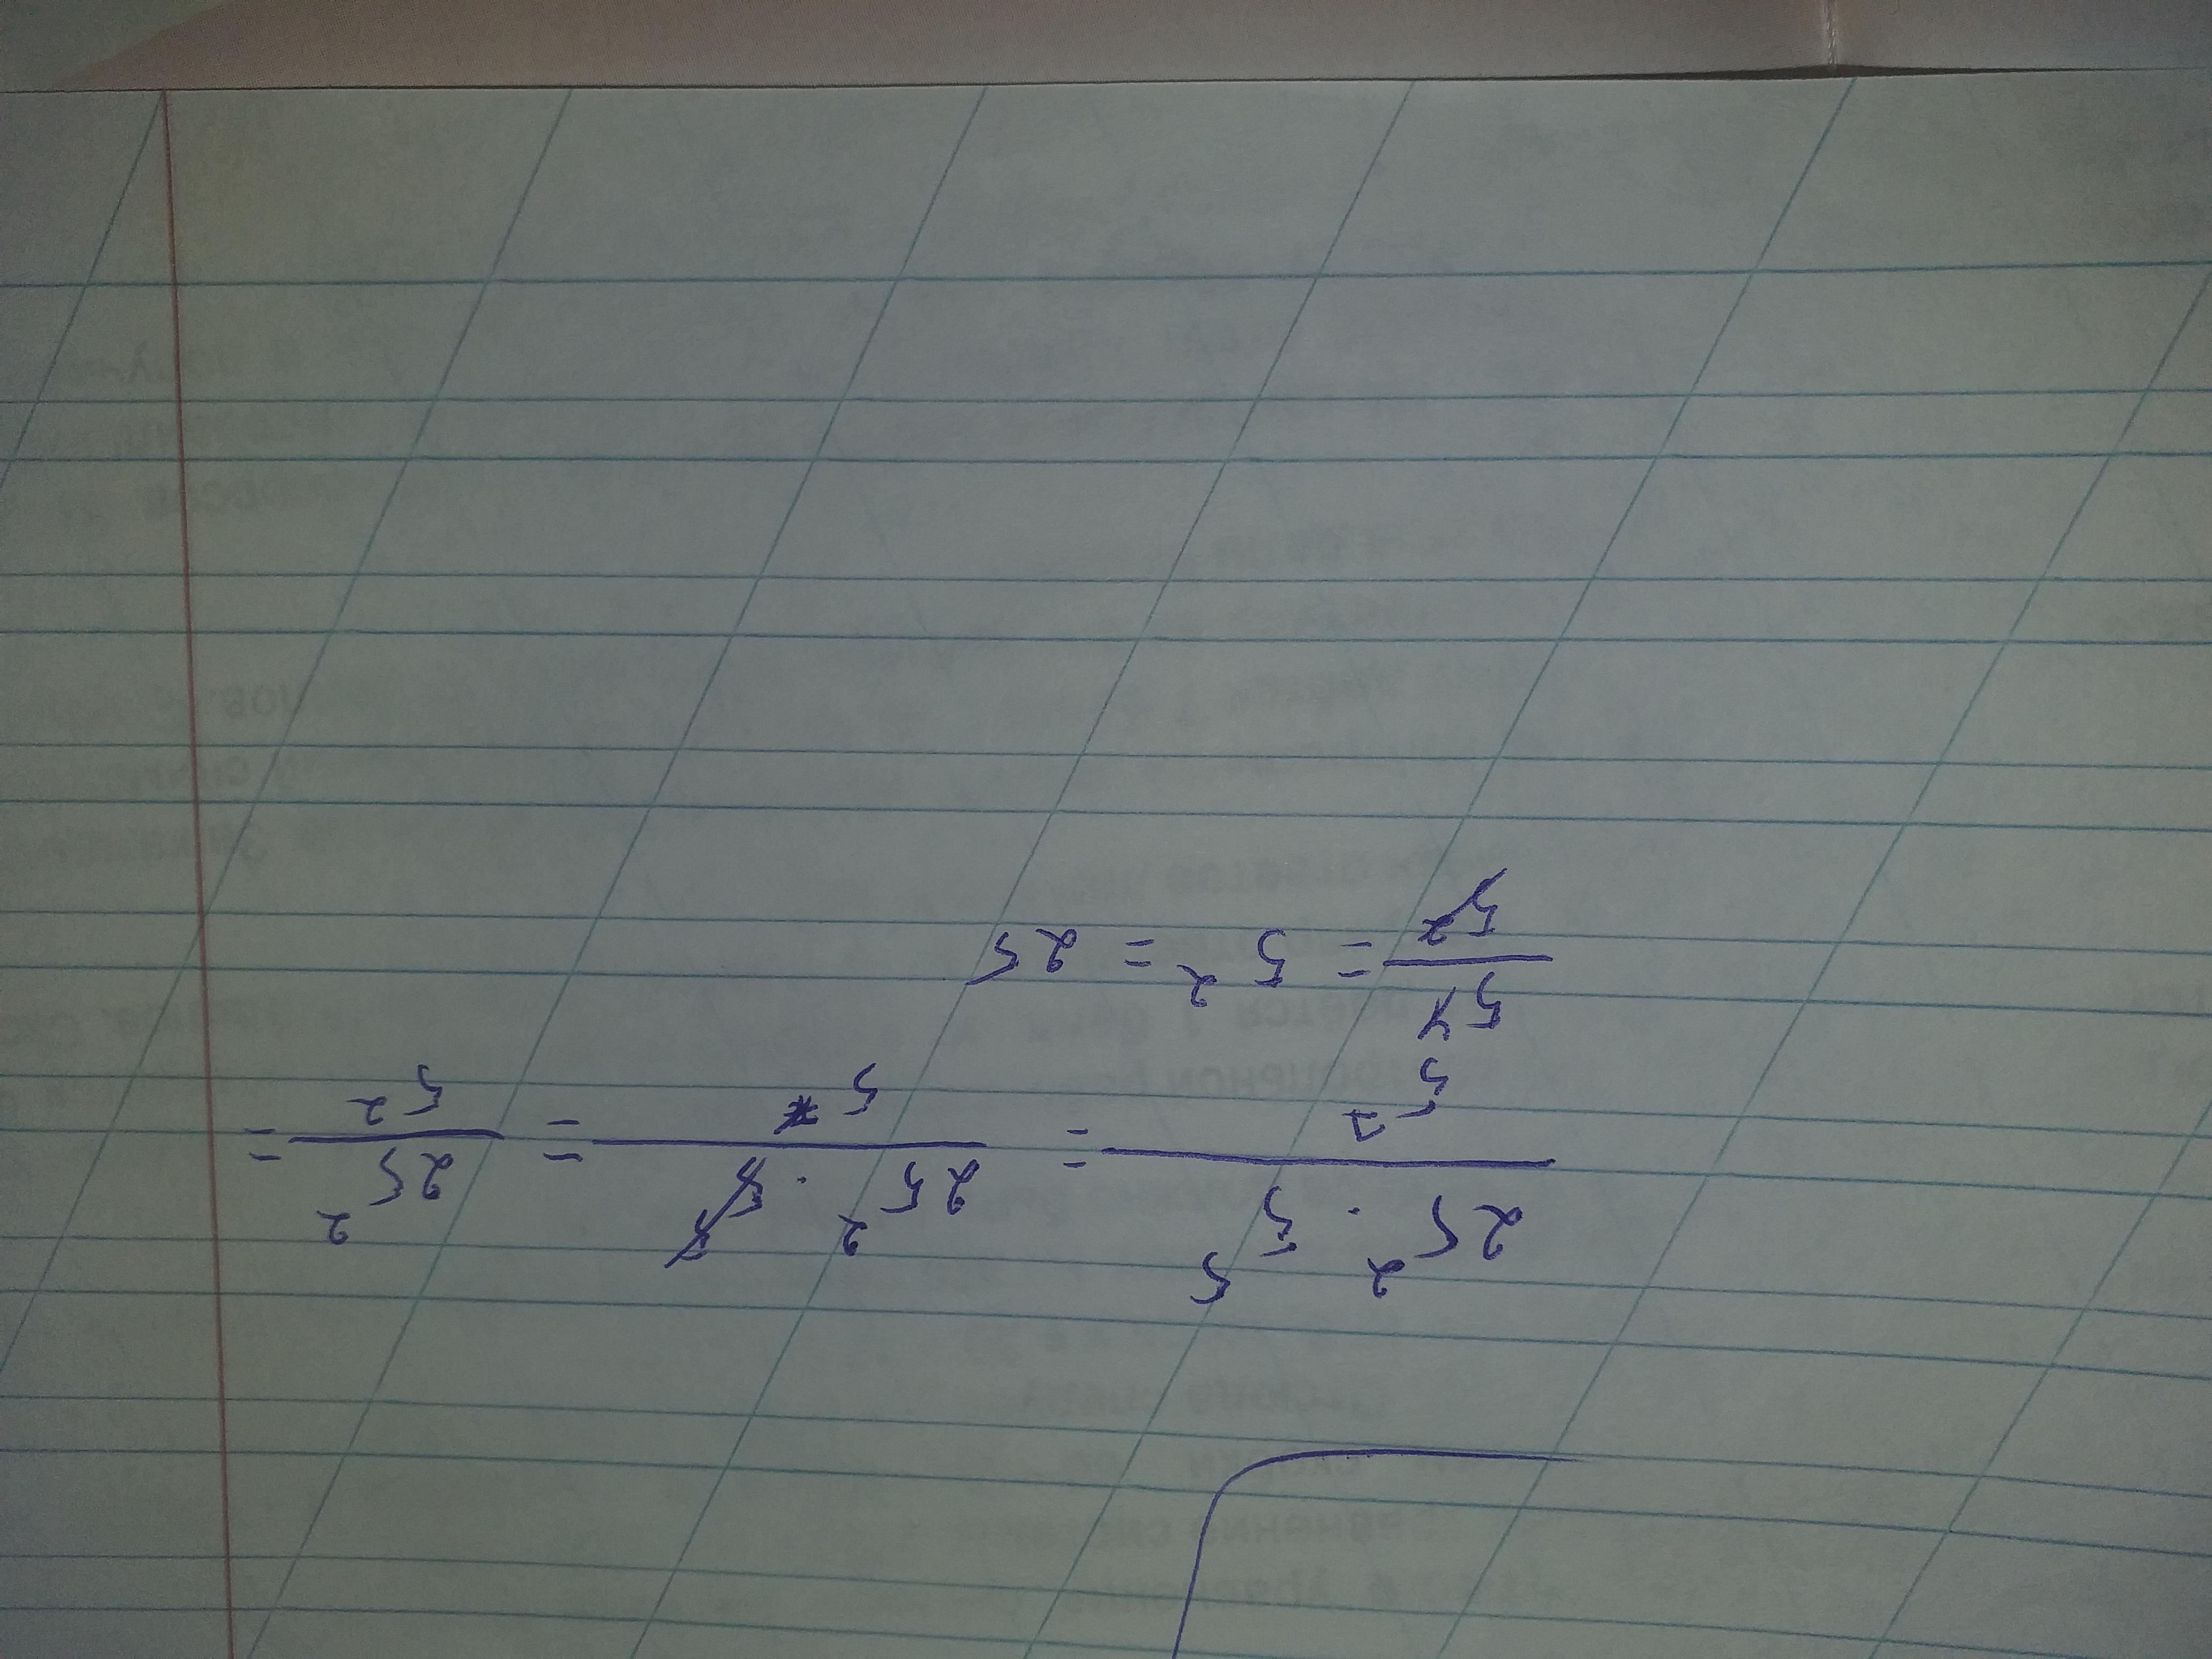 25² · 5⁵ / 5⁷ = 25² · 5⁵ / 5⁷ = 25² / 5² =
5⁴ / 5² = 5² = 25